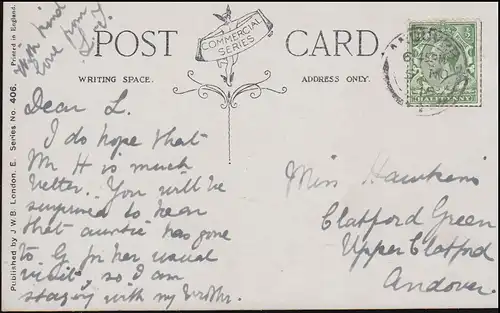 With kind
love from
L. J.
POST CARD
COMMERCIAL
SERIES
WRITING SPACE.
ADDRESS ONLY.
Dear L.
I do hope that
Mr H is much
better. You will be
surprised to hear
that auntie has gone
to G for her usual
visit, so I am
staying with my brother.
Miss Hawkins
Clatford Green
Upper Clatford
Andover.
HALFPENNY
ANDOVER
Published by J.W.B. London, E. Series No. 406. Printed in England.